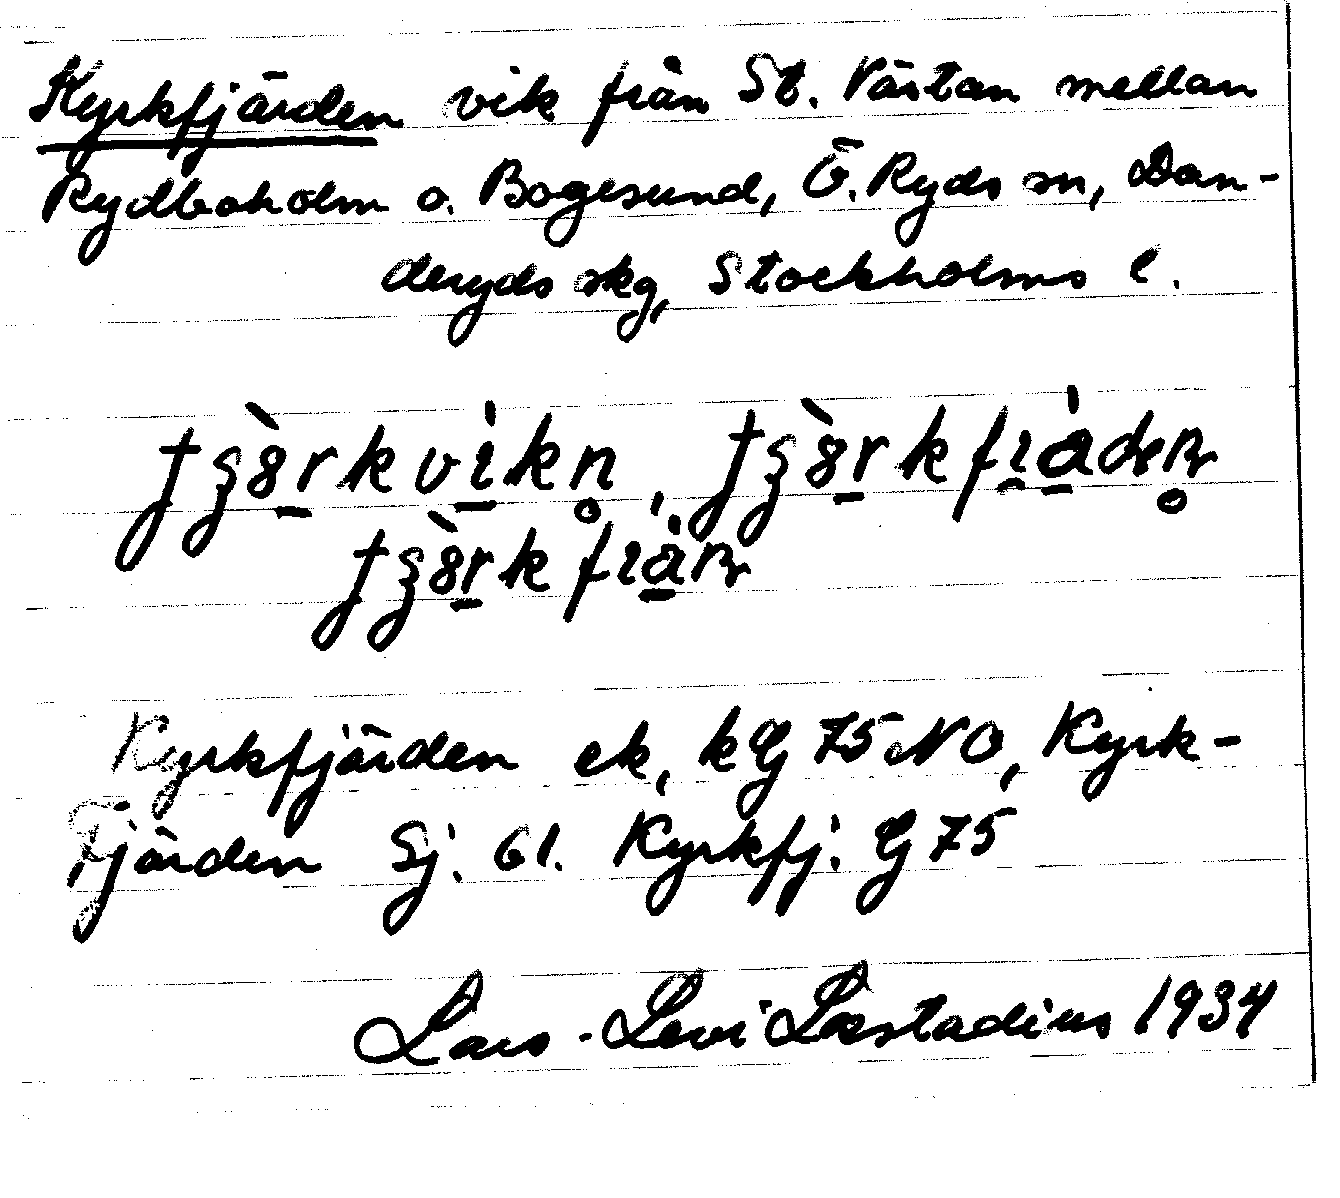 Kyrkfjärden vik från St. Värtan mellan
Rydboholm o. Bogesund, Ö. Ryds sn, Dan-
deryds skg, Stockholms l.
Kyrkfjärden ek, kG 75 NO, Kyrk-
Fjärden Sj. 61. Kyrkfj. G 75
Lars-Levi Læstadius 1934